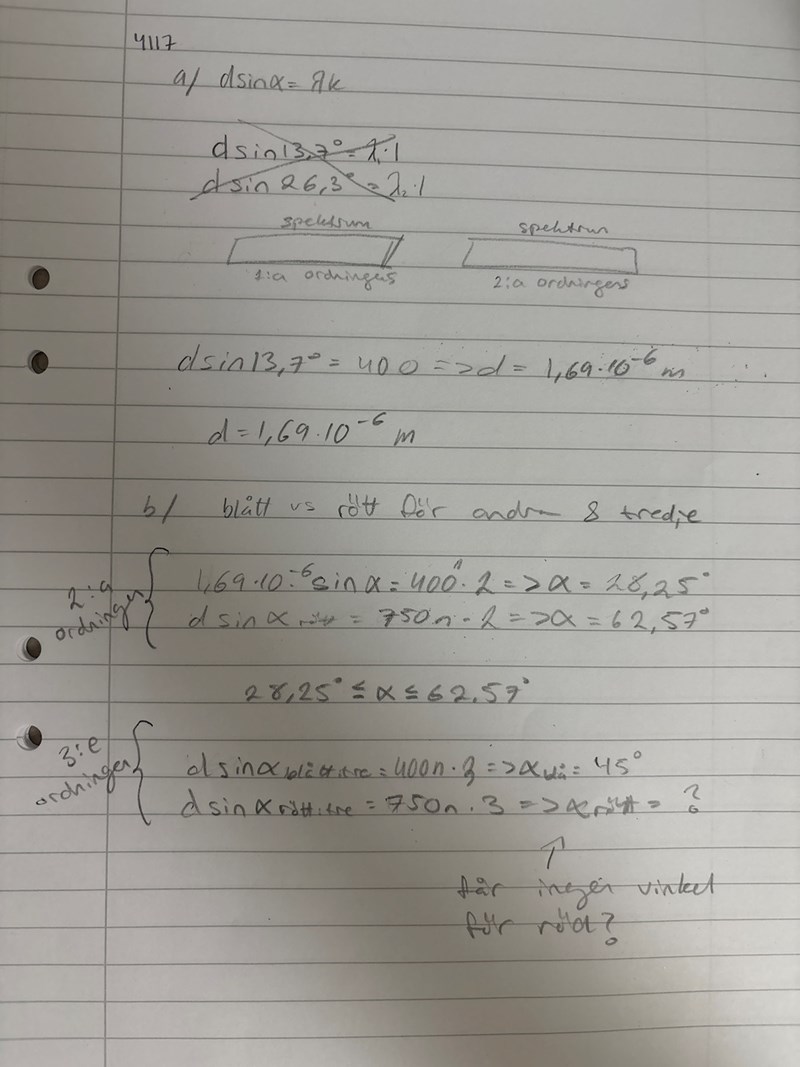 4117
a/ dsinα = λk
dsin13,7° = λ₁·1
dsin 26,3° = λ₂·1
spektrum spektrum
1:a ordningens 2:a ordningens
dsin13,7° = 400 => d = 1,69·10⁻⁶ m
d = 1,69·10⁻⁶ m
b/ blått vs rött för andra & tredje
2:a ordningen
1,69·10⁻⁶ sinα = 400n · 2 => α = 28,25°
d sin α rött = 750n · 2 => α = 62,57°
28,25° ≤ α ≤ 62,57°
3:e ordningen
d sinα blått:tre = 400n · 3 => α blå = 45°
d sin α rött:tre = 750n · 3 => α rött = ?
↑
får ingen vinkel
för röd?